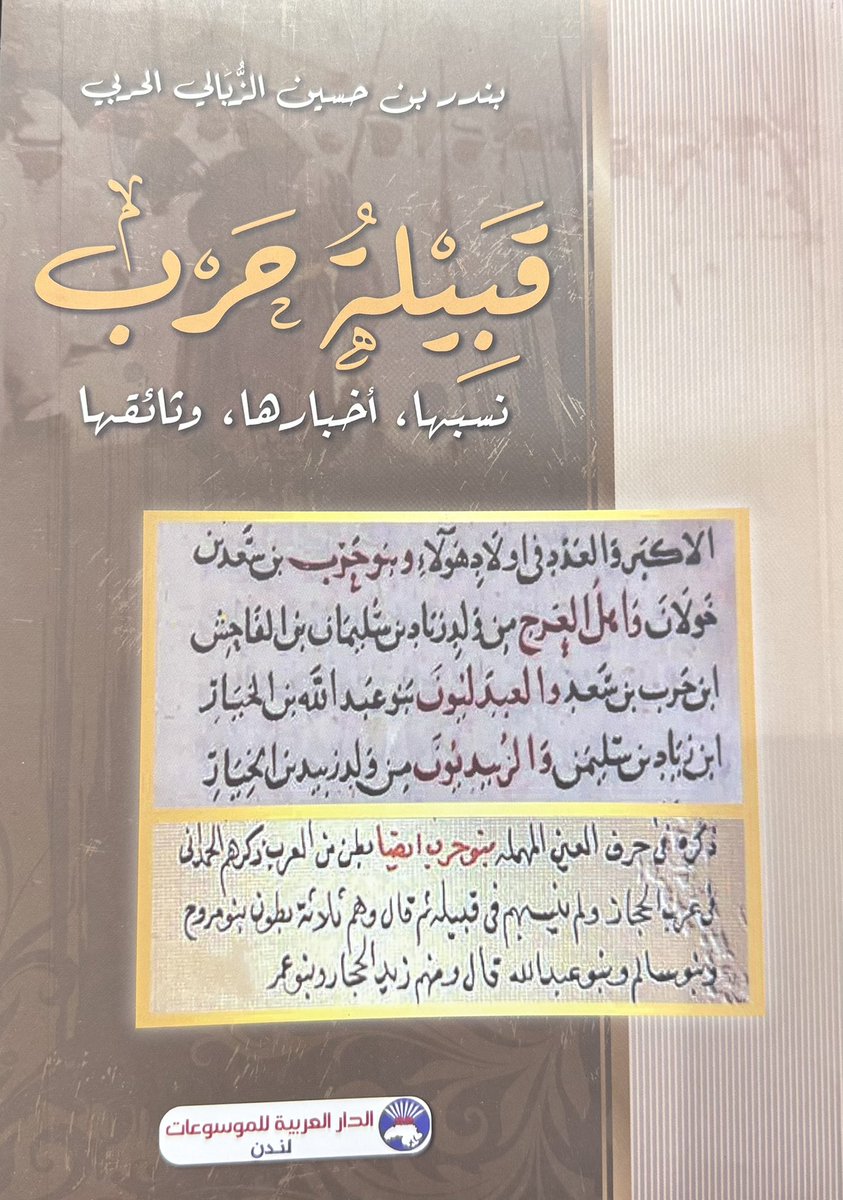 بندر بن حسين الزُّبَالي الحربي
قَبِيْلةُ حَرْب
نسبها، أخبارها، وثائقها
الاكبر والعدد فى اولاد هولآء وبنو حَرْب بن سَعْد بن
خولان وَاهلُ العَرج من وَلدِ زيَاد بن سُليمَان بن الفَاحِش
ابن حَرب بن سَعد والعبدليُون بَنو عَبد الله بن الخيَار
ابن زيَاد بن سليمن وَالزبيديُون من ولد زبيد بن الخِيَارِ
ذكره فى حرف العين المهمله بنو حرب ايضا بطن من العرب ذكرهم الحمدانى
فى عرب الحجاز ولم ينسبهم فى قبيلة ثم قال وهم ثلاثة بطون بنو مروح
وبنو سالم وبنو عبد الله قال ومنهم زبيد الحجاز وبنو عمر
الدار العربية للموسوعات
لندن